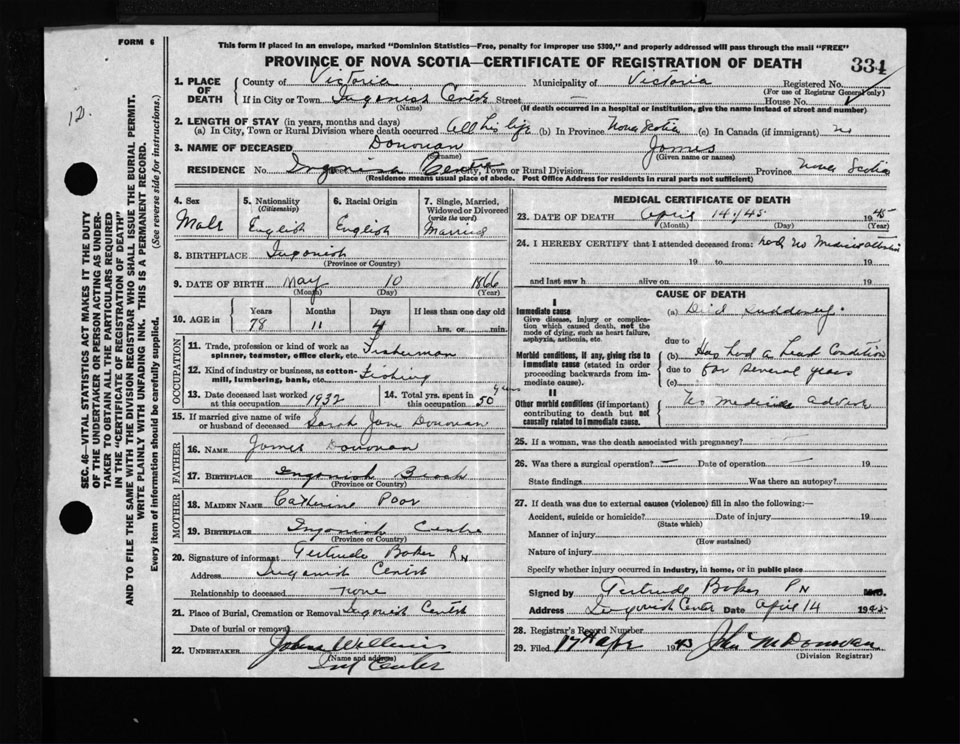 FORM 6
This form if placed in an envelope, marked "Dominion Statistics—Free, penalty for improper use $300," and properly addressed will pass through the mail "FREE"
PROVINCE OF NOVA SCOTIA—CERTIFICATE OF REGISTRATION OF DEATH
334
1. PLACE OF DEATH
County of Victoria Municipality of Victoria Registered No.
(For use of Registrar General only)
If in City or Town Ingonish Centre Street — House No.
(Name) (If death occurred in a hospital or institution, give the name instead of street and number)
2. LENGTH OF STAY (in years, months and days)
(a) In City, Town or Rural Division where death occurred All his life (b) In Province Nova Scotia (c) In Canada (if immigrant) no
3. NAME OF DECEASED Donovan James
(Surname) (Given name or names)
RESIDENCE No. Ingonish Centre City, Town or Rural Division Province Nova Scotia
(Residence means usual place of abode. Post Office Address for residents in rural parts not sufficient)
4. Sex
Male
5. Nationality
(Citizenship)
English
6. Racial Origin
English
7. Single, Married, Widowed or Divorced
(write the word)
Married
8. BIRTHPLACE Ingonish
(Province or Country)
9. DATE OF BIRTH May 10 1866
(Month) (Day) (Year)
10. AGE in
Years Months Days If less than one day old
78 11 4 hrs. or min.
OCCUPATION
11. Trade, profession or kind of work as spinner, teamster, office clerk, etc. Fisherman
12. Kind of industry or business, as cotton-mill, lumbering, bank, etc. Fishing
13. Date deceased last worked at this occupation 1932
14. Total yrs. spent in this occupation 50 years
15. If married give name of wife or husband of deceased Sarah Jane Donovan
FATHER
16. NAME James Donovan
17. BIRTHPLACE Ingonish Beach
(Province or Country)
MOTHER
18. MAIDEN NAME Catherine Poor
19. BIRTHPLACE Ingonish Centre
(Province or Country)
20. Signature of informant Gertrude Baker RN
Address Ingonish Centre
Relationship to deceased none
21. Place of Burial, Cremation or Removal Ingonish Centre
Date of burial or removal
22. UNDERTAKER John Williams
(Name and address)
Ing Center
MEDICAL CERTIFICATE OF DEATH
23. DATE OF DEATH April 14/45 1945
(Month) (Day) (Year)
24. I HEREBY CERTIFY that I attended deceased from: had no Medical
19 to 19
and last saw h alive on 19
CAUSE OF DEATH
I
Immediate cause
Give disease, injury or complication which caused death, not the mode of dying, such as heart failure, asphyxia, asthenia, etc.
(a) Died suddenly.
due to
Morbid conditions, if any, giving rise to immediate cause (stated in order proceeding backwards from immediate cause).
(b) Has had a heart condition
due to for several years
(c)
II
Other morbid conditions (if important) contributing to death but not causally related to immediate cause.
No medical advice
25. If a woman, was the death associated with pregnancy? —
26. Was there a surgical operation? — Date of operation — 19
State findings Was there an autopsy?
27. If death was due to external causes (violence) fill in also the following:
Accident, suicide or homicide? Date of injury 19
(State which)
Manner of injury
(How sustained)
Nature of injury
Specify whether injury occurred in industry, in home, or in public place
Signed by Gertrude Baker RN M.D.
Address Ingonish Centre Date April 14 1945
28. Registrar's Record Number
29. Filed 17th Apr 1945 John M Donovan
(Division Registrar)
SEC. 46—VITAL STATISTICS ACT MAKES IT THE DUTY
OF THE UNDERTAKER OR PERSON ACTING AS UNDERTAKER TO OBTAIN ALL THE PARTICULARS REQUIRED
IN THE "CERTIFICATE OF REGISTRATION OF DEATH"
AND TO FILE THE SAME WITH THE DIVISION REGISTRAR WHO SHALL ISSUE THE BURIAL PERMIT.
WRITE PLAINLY WITH UNFADING INK. THIS IS A PERMANENT RECORD.
Every item of information should be carefully supplied. (See reverse side for instructions.)